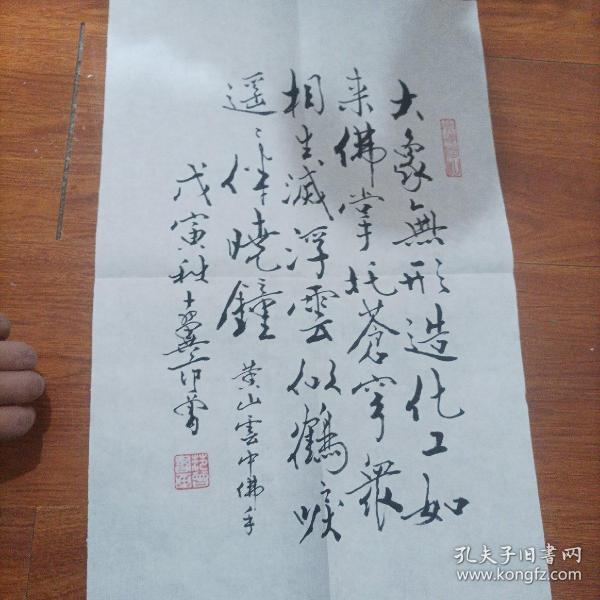 大象無形造化工如
来佛掌托蒼穹眾
相生滅浮雲似鶴唳
遥〻伴曉鐘
黄山雲中佛手
戊寅秋十翼范曾
孔夫子旧书网
www.kongfz.com